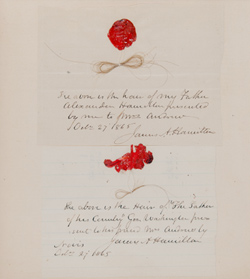 The above is the hair of my Father
Alexander Hamilton presented
by me to Mrs Andrew
Dec 27 1865
James A Hamilton
The above is the Hair of "The Father
of his Country" Gen Washington
me to his friend Mrs Andrew by
James A Hamilton
Dec 27 1865